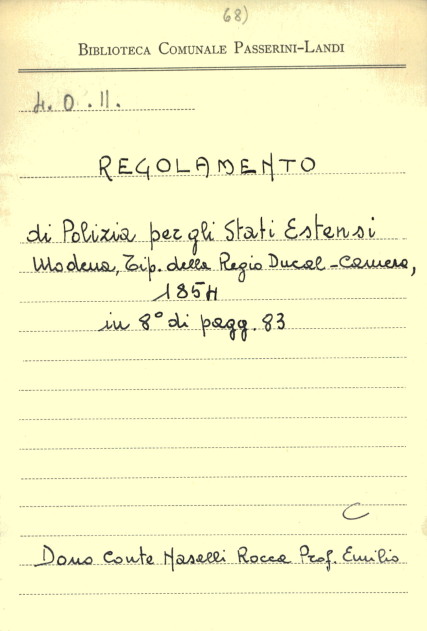 68)
BIBLIOTECA COMUNALE PASSERINI-LANDI
4. O. II.
REGOLAMENTO
di Polizia per gli Stati Estensi
Modena, Tip. della Regio Ducal-Camera,
1854
in 8° di pagg. 83
C
Dono Conte Naselli Rocca Prof. Emilio